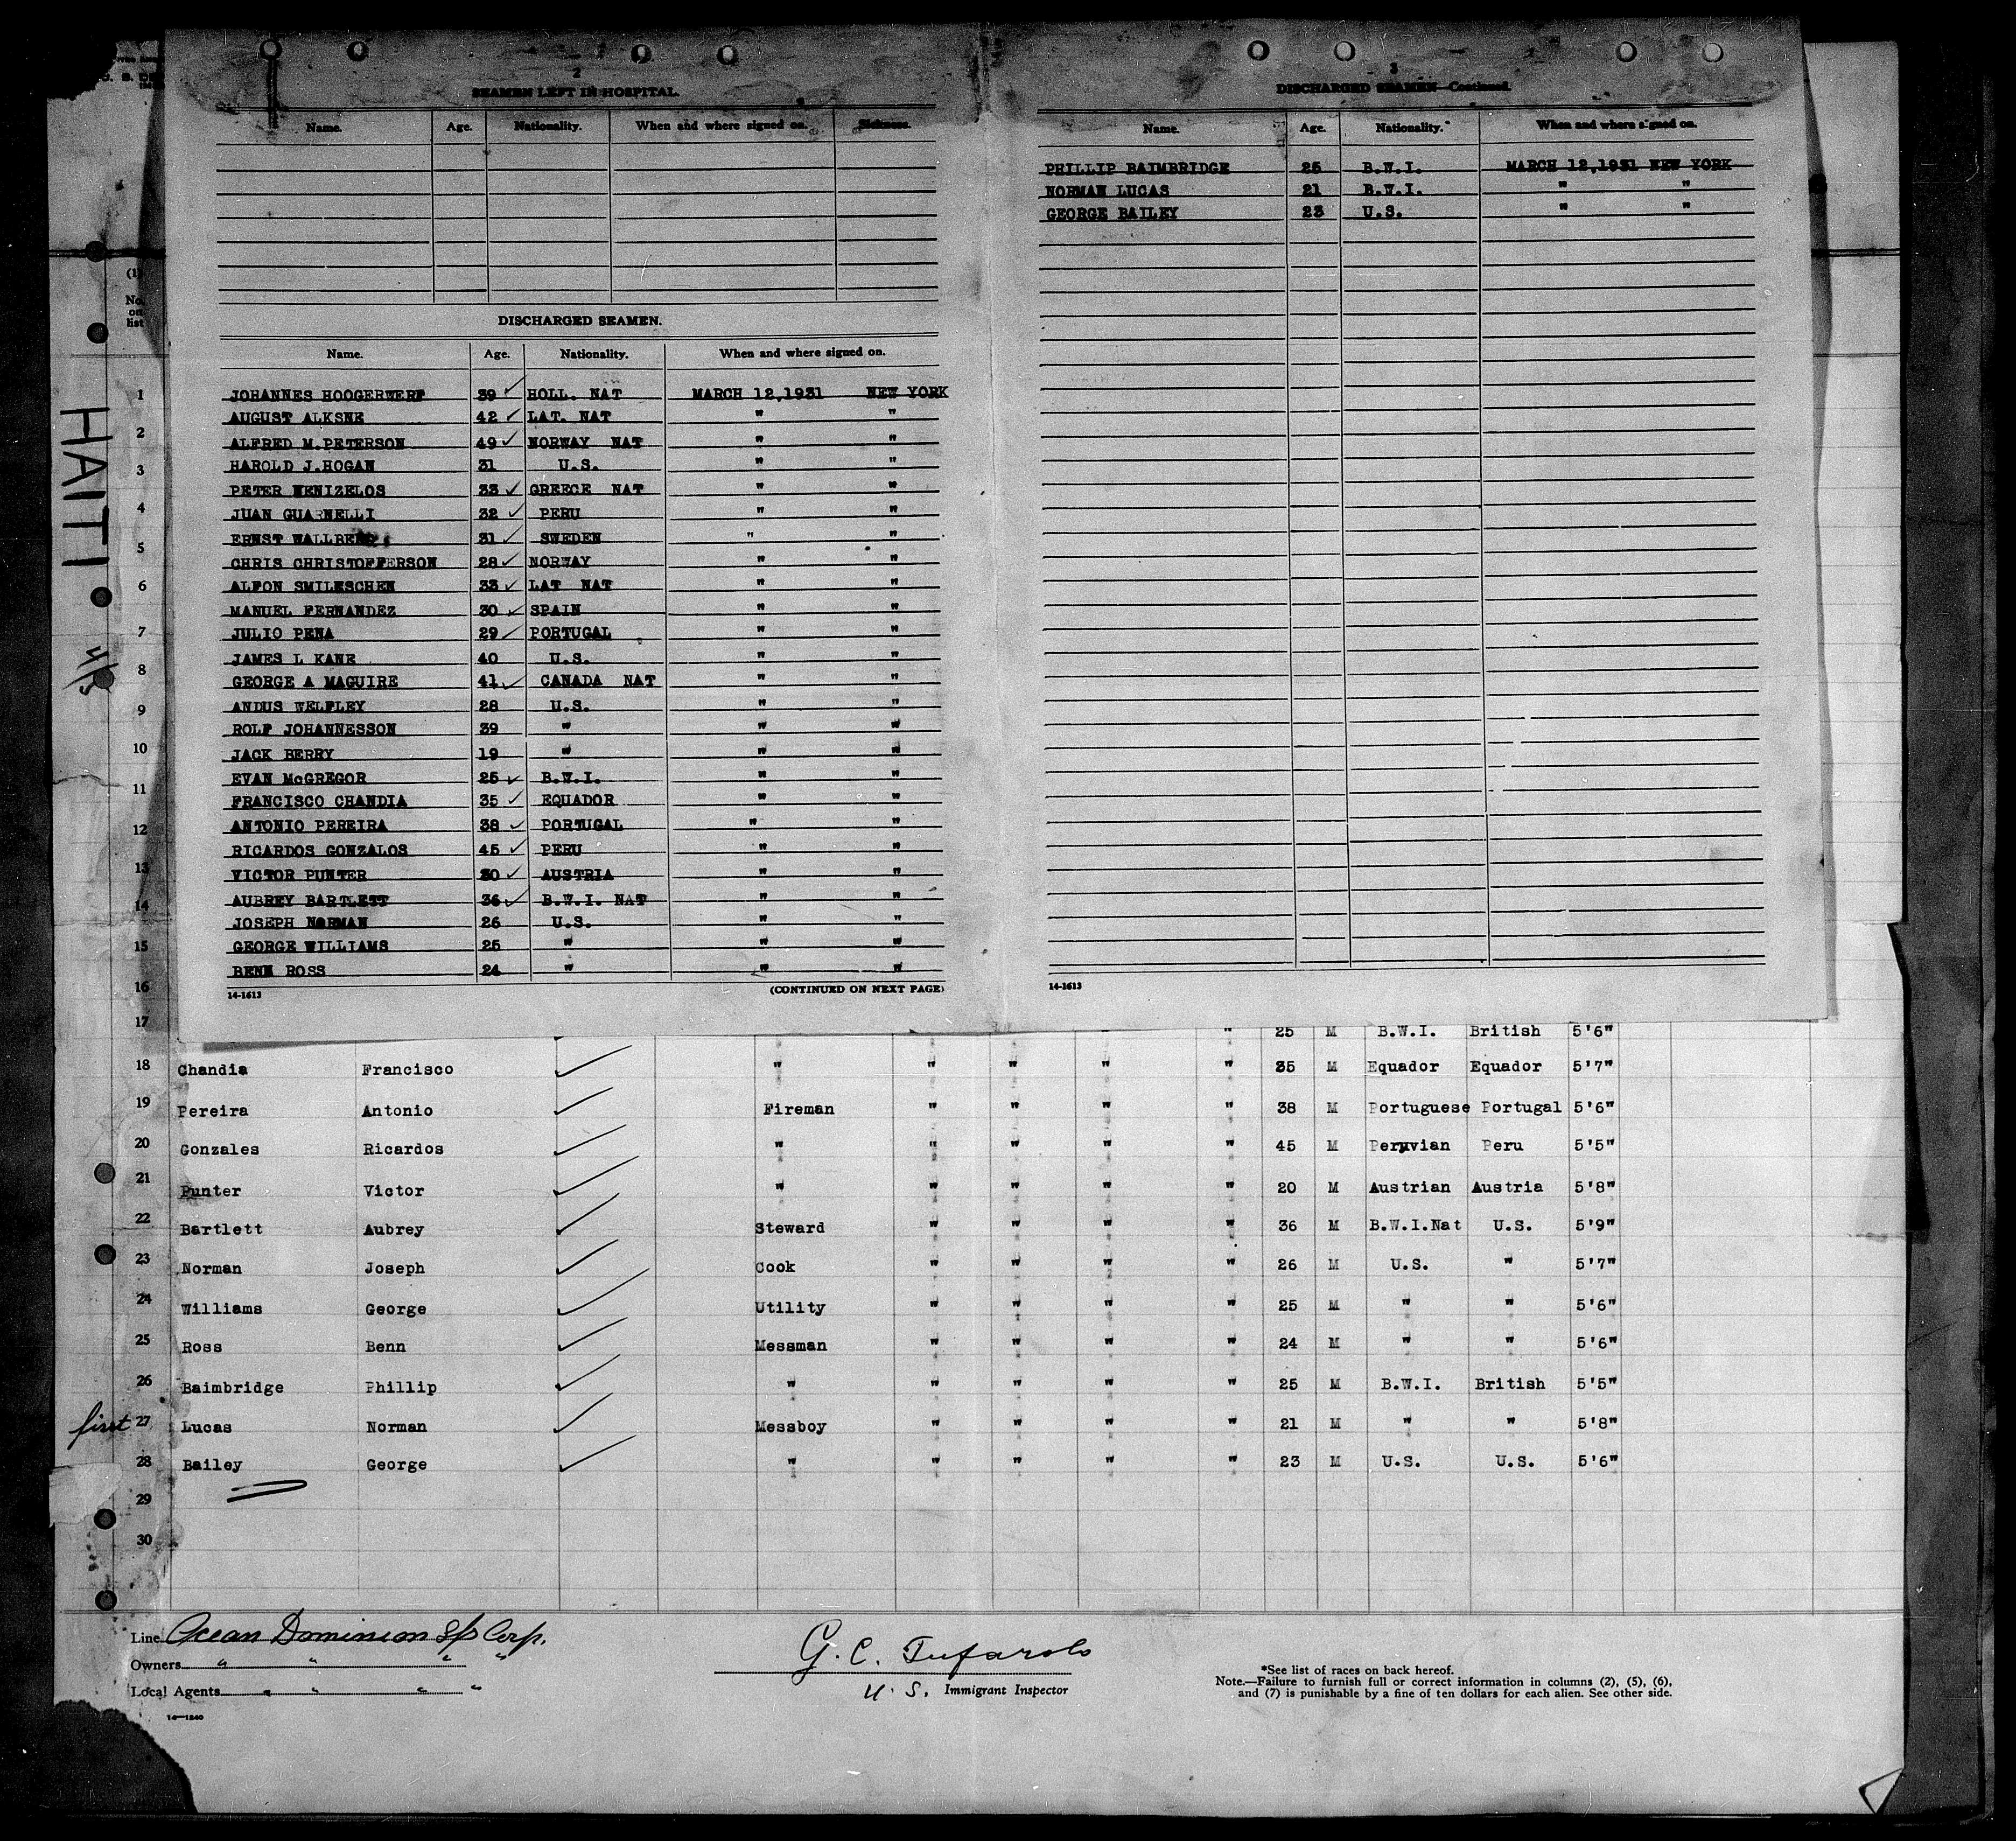 2
SEAMEN LEFT IN HOSPITAL.
Name. Age. Nationality. When and where signed on. Sickness.
DISCHARGED SEAMEN.
Name. Age. Nationality. When and where signed on.
JOHANNES HOOGERWERF 39 HOLL. NAT MARCH 12,1931 NEW YORK
AUGUST ALKSNE 42 LAT. NAT " "
ALFRED M.PETERSON 49 NORWAY NAT " "
HAROLD J.HOGAN 31 U.S. " "
PETER WENIZELOS 33 GREECE NAT " "
JUAN GUARNELLI 32 PERU " "
ERNST 31 SWEDEN " "
CHRIS CHRISTOFFERSON 28 NORWAY " "
ALFON SMILESCHEN 33 LAT NAT " "
MANUEL FERNANDEZ 30 SPAIN " "
JULIO PENA 29 PORTUGAL " "
JAMES L KANE 40 U.S. " "
GEORGE A MAGUIRE 41 CANADA NAT " "
ANDUS WELFLEY 28 U.S. " "
ROLF JOHANNESSON 39 " " "
JACK BERRY 19 " " "
EVAN McGREGOR 25 B.W.I. " "
FRANCISCO CHANDIA 35 EQUADOR " "
ANTONIO PEREIRA 38 PORTUGAL " "
RICARDOS GONZALOS 45 PERU " "
VICTOR PUNTER 30 AUSTRIA " "
AUBREY BARTLETT 36 B.W.I. NAT " "
JOSEPH NORMAN 26 U.S. " "
GEORGE WILLIAMS 25 " " "
BENN ROSS 24 " " "
14-1613 (CONTINUED ON NEXT PAGE)
3
DISCHARGED SEAMEN—Continued.
Name. Age. Nationality. When and where signed on.
PHILLIP BAIMBRIDGE 25 B.W.I. MARCH 12,1931 NEW YORK
NORMAN LUCAS 21 B.W.I. " "
GEORGE BAILEY 23 U.S. " "
14-1613
(1)
No.
on
list
HAITI
4/5
1
2
3
4
5
6
7
8
9
10
11
12
13
14
15
16
17 " 25 M B.W.I. British 5'6"
18 Chandia Francisco " " " " " 35 M Equador Equador 5'7"
19 Pereira Antonio Fireman " " " " 38 M Portuguese Portugal 5'6"
20 Gonzales Ricardos " " " " " 45 M Peruvian Peru 5'5"
21 Punter Victor " " " " " 20 M Austrian Austria 5'8"
22 Bartlett Aubrey Steward " " " " 36 M B.W.I.Nat U.S. 5'9"
23 Norman Joseph Cook " " " " 26 M U.S. " 5'7"
24 Williams George Utility " " " " 25 M " " 5'6"
25 Ross Benn Messman " " " " 24 M " " 5'6"
26 Baimbridge Phillip " " " " " 25 M B.W.I. British 5'5"
first 27 Lucas Norman Messboy " " " " 21 M " " 5'8"
28 Bailey George " " " " " 23 M U.S. U.S. 5'6"
29
30
Line Ocean Dominion S/S Corp.
Owners " " " "
Local Agents " " " "
14—1240
G. C. Tufarolo
U. S. Immigrant Inspector
*See list of races on back hereof.
Note.—Failure to furnish full or correct information in columns (2), (5), (6),
and (7) is punishable by a fine of ten dollars for each alien. See other side.